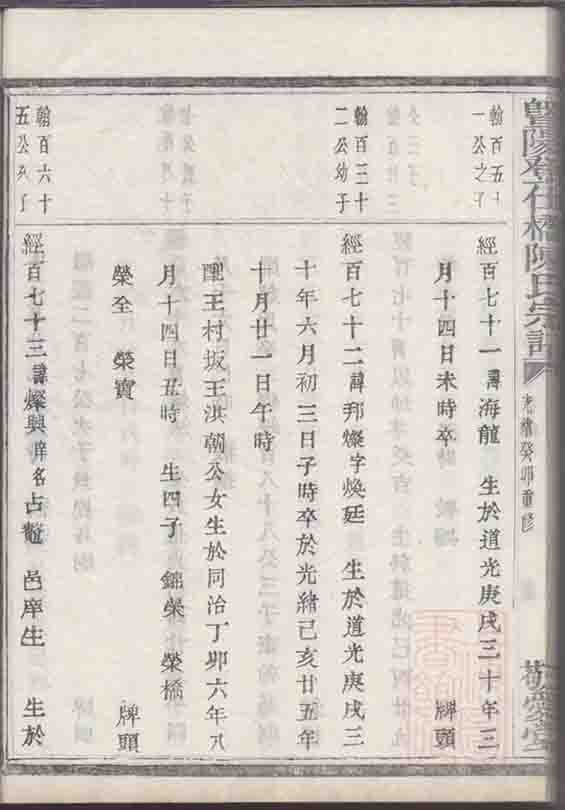 暨陽 石橋陳氏宗譜
光緒癸卯重修
敬愛堂
翰百五十
一公之子
經百七十一 諱海龍 生於道光庚戌三十年三
月十四日未時卒 牌頭
翰百三十
二公幼子
經百七十二 諱邦燦字煥廷 生於道光庚戌三
十年六月初三日子時卒於光緒己亥廿五年
十月廿一日午時
配王村坂王洪朝公女生於同治丁卯六年八
月十四日丑時 生四子 錦榮 榮橋
榮全 榮寶 牌頭
翰百六十
五公次子
經百七十三 諱燦興庠名占鰲 邑庠生 生於